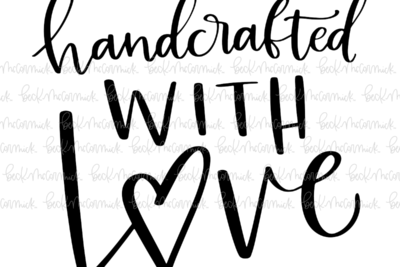 handcrafted
WITH
LOVe